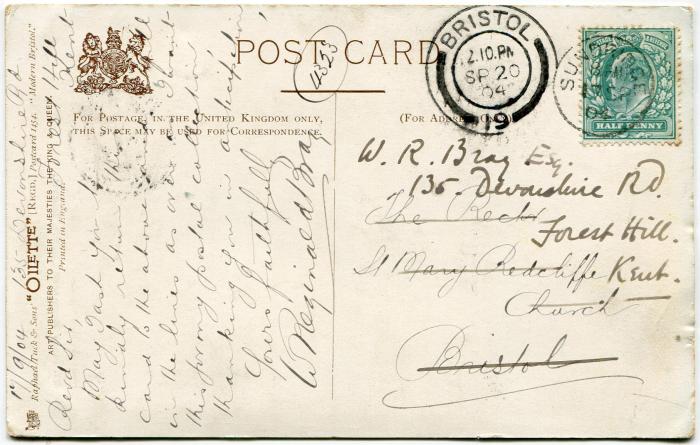 POST CARD
4323
FOR POSTAGE IN THE UNITED KINGDOM ONLY,
THIS SPACE MAY BE USED FOR CORRESPONDENCE.
(FOR ADDRESS ONLY.)
BRISTOL
2.10.PM
SP 20
04
19
04
HALF PENNY
W. R. Bray Esq.
135. Devonshire Rd.
The Rector
Forest Hill.
St Mary Redcliffe Kent.
Church
Bristol
Raphael Tuck & Sons' "OILETTE" [REGD.] Postcard 1154. "Modern Bristol."
ART PUBLISHERS TO THEIR MAJESTIES THE KING & QUEEN.
Printed in England.
135 Devonshire Rd
Forest Hill
Kent
17/9/04
Revd Sir,
May I ask you to
kindly return this
card to the above address
in the lines as I want
this for my postal collection
thanking you in anticipation
Yours faithfully
W Reginald Bray